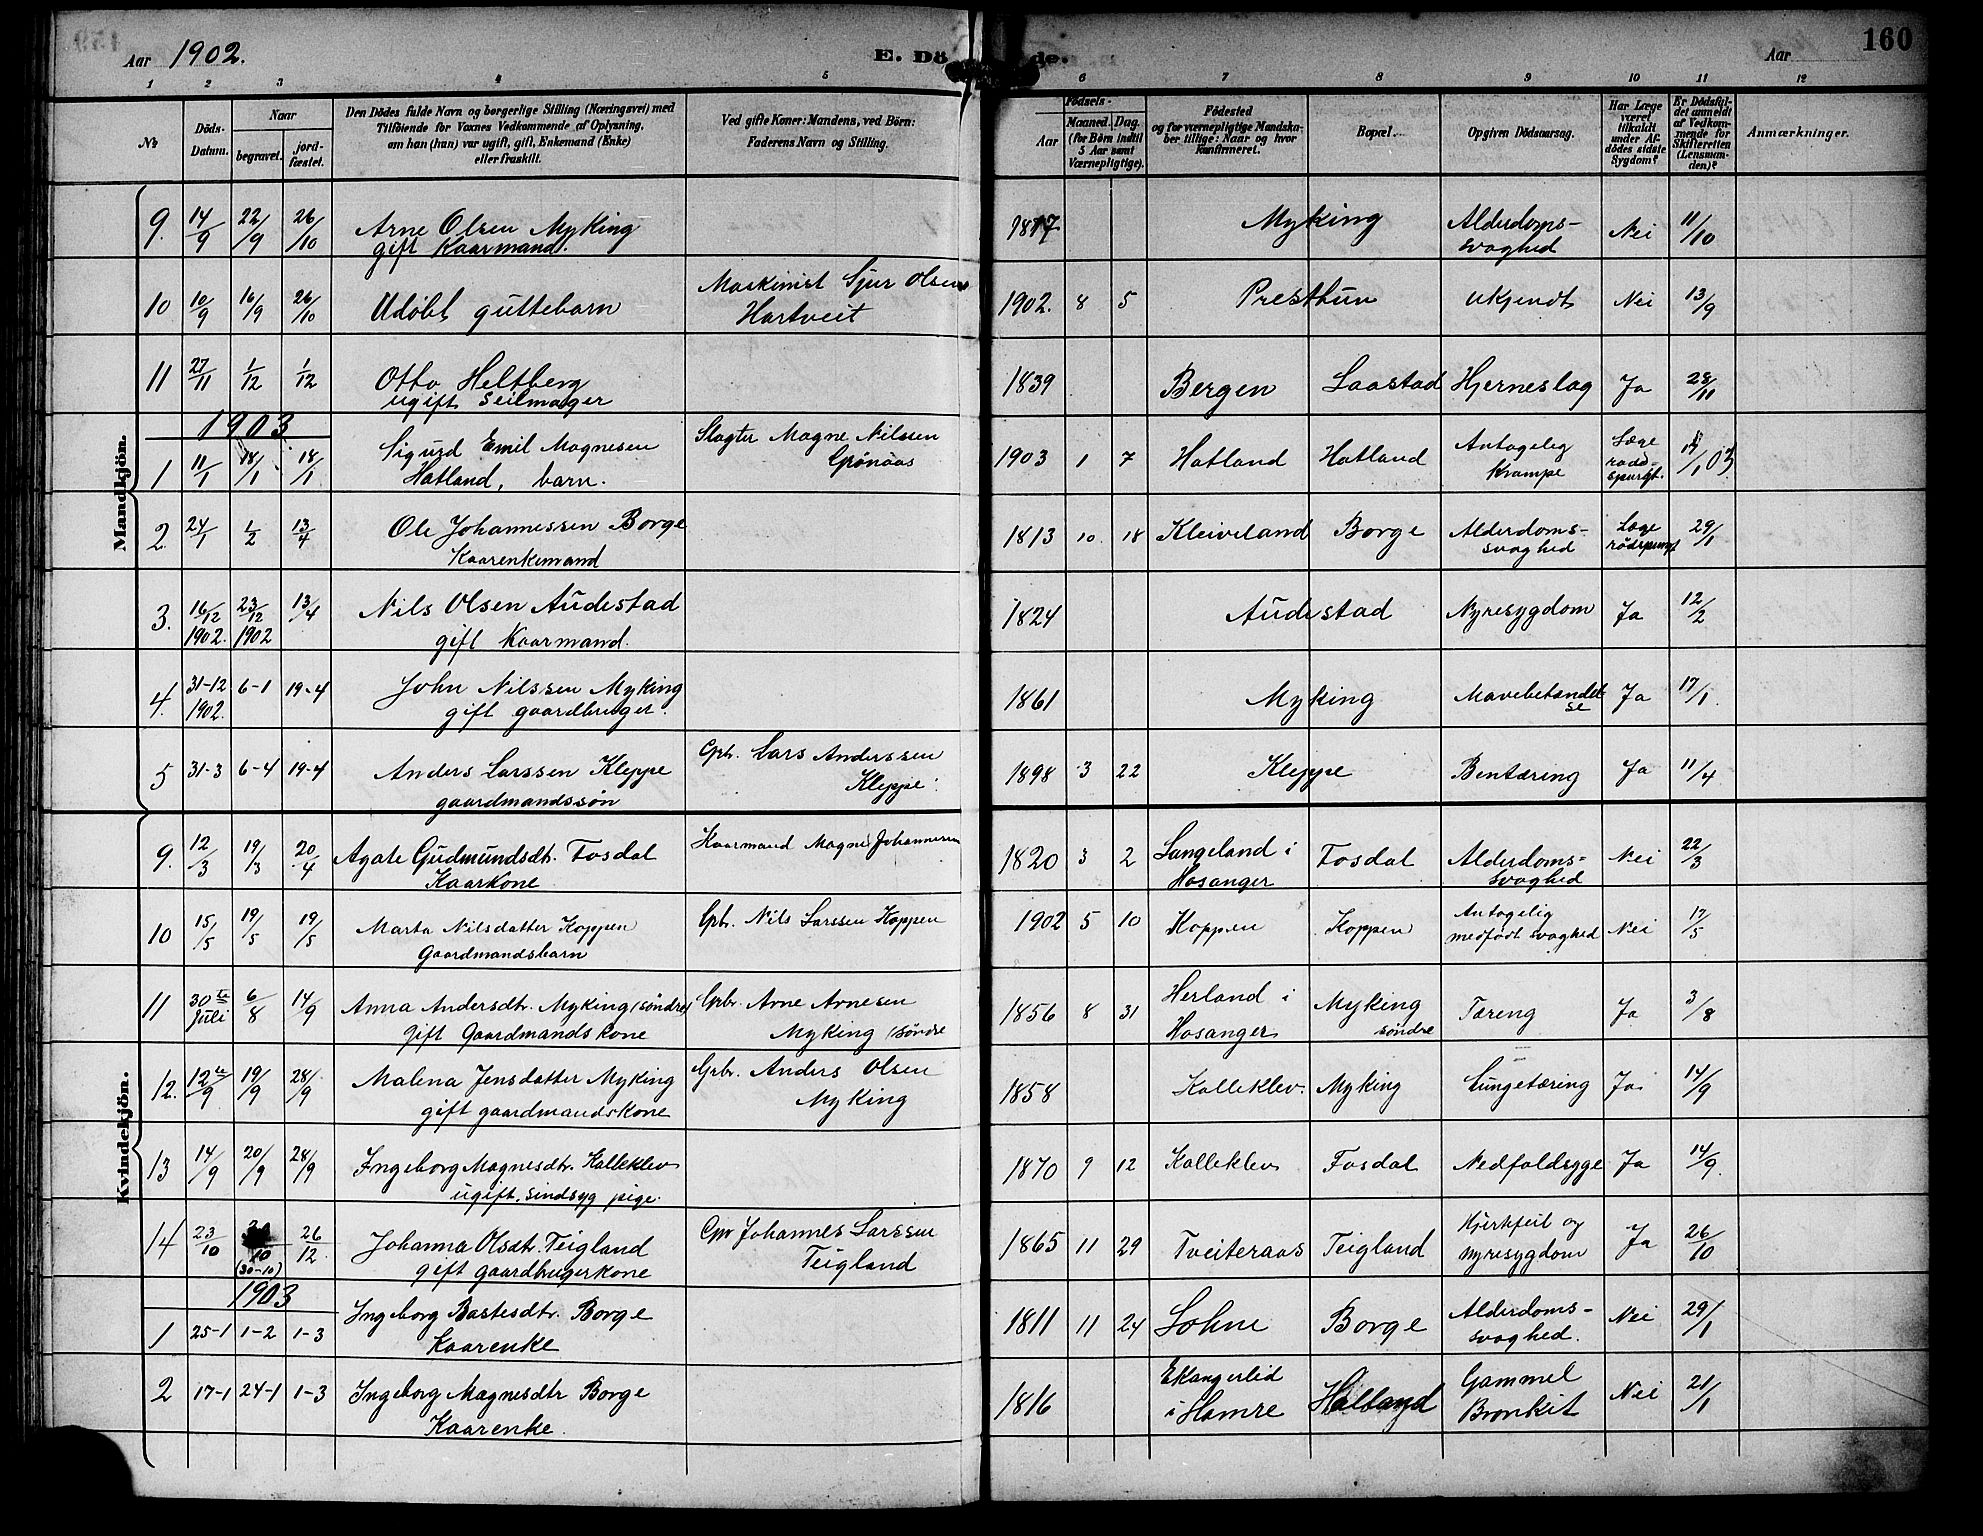 Aar 1902.
E. Dö de.
Aar
160
1 2 3 4 5 6 7 8 9 10 11 12
№
Döds-Datum.
Naar
begravet.
jord-fæstet.
Den Dödes fulde Navn og borgerlige Stilling (Næringsvei) med
Tilföiende for Voxnes Vedkommende af Oplysning,
om han (hun) var ugift, gift, Enkemand (Enke)
eller fraskilt.
Ved gifte Koner: Mandens, ved Börn:
Faderens Navn og Stilling.
Födsels-
Aar
Maaned. Dag.
(for Börn indtil
5 Aar samt
Værnepligtige).
Födested
og for værnepligtige Mandska-
ber tillige: Naar og hvor
konfirmeret.
Bopæl.
Opgiven Dödsaarsag.
Har Læge
været
tilkaldt
under Af-
dödes sidste
Sygdom?
Er Dödsfal-
det anmeldt
af Vedkom-
mende for
Skifteretten
(Lensman-
den)?
Anmærkninger.
Mandkjön.
9. 14/9 22/9 26/10 Arne Olsen Myking 1817 Myking Alderdoms- Nei 11/10
gift Kaarmand. svaghed
10 10/9 16/9 26/10 Udöbt guttebarn Maskinist Sjur Olsen 1902. 8 5 Presthun ukjendt Nei 13/9
Hartveit
11 27/11 1/12 1/12 Otto Heltberg 1839 Bergen Laastad Hjerneslag Ja 28/11
ugift seilmager
1903
1 11/1 18/1 18/1 Sigurd Emil Magnesen Slagter Magne Nilssen 1903 1 7 Hatland Hatland Antagelig Læge
Hatland, barn. Grönaas Krampe raad-
spurgt. /1 03.
2. 24/1 1/2 13/4 Ole Johannessen Borge 1813 10. 18 Kleiveland Borge Alderdoms- Læge 29/1
Kaarenkemand svaghed
3. 16/12 23/12 13/4 Nils Olsen Audestad 1824 Audestad Nyresygdom Ja 12/2
1902. 1902 gift Kaarmand.
4. 31-12 6-1 19-4 John Nilssen Myking 1861 Myking Mavebetændel- Ja 17/1.
1902. gift gaardbruger. se
5 31-3 6-4 19-4 Anders Larssen Kleppe Gbr. Lars Anderssen 1898 3 22 Kleppe Bentæring Ja 11/4
gaardmandssön Kleppe
Kvindekjön.
9. 12/3 19/3 20/4 Agate Gudmundsdt. Fosdal Kaarmand Magne Johannessen 1820 3 2 Langeland i Fosdal Alderdoms- Nei 22/3
Kaarkone Hosanger svaghed
10 15/5 19/5 19/5 Marta Nilsdatter Koppen Gbr. Nils Larssen Koppen 1902 5 10 Koppen Koppen Antagelig Nei 17/5
Gaardmandsbarn medfödt svaghed
11 30te Juli 6/8 14/9 Anna Andersdtr. Myking (söndre) Grbr. Arne Arnesen 1856 8 31 Herland i Myking Tæring Ja 3/8
gift Gaardmandskone Myking (söndre Hosanger söndre
12. 12te/9 19/9 28/9 Malena Jensdatter Myking Grbr. Anders Olsen 1858 Kalleklev. Myking Lungetæring Ja 14/9
gift gaardmandskone Myking
13 14/9 20/9 28/9 Ingeborg Magnesdtr. Kalleklev 1870 9 12 Kalleklev Fosdal Nedfaldsyge Ja 14/9.
ugift, sindsyg pige.
14 23/10 /10 26/12. Johanna Olsdtr. Teigland Johannes Larssen 1865 11 29 Tveiteraas Teigland Hjertfeil og Ja 26/10
(30-10) gift gaardbrugerkone Teigland nyresygdom
1903
1 25-1 1-2 1-3 Ingeborg Bastesdtr. Borge 1811 11 24 Lohne Borge Alderdoms- Nei 29/1
Kaarenke svaghed.
2 17-1 24-1 1-3 Ingeborg Magnesdtr Borge 1816 Ekangerlid Gammel Nei 21/1
Kaarenke. i Hamre Bronkit